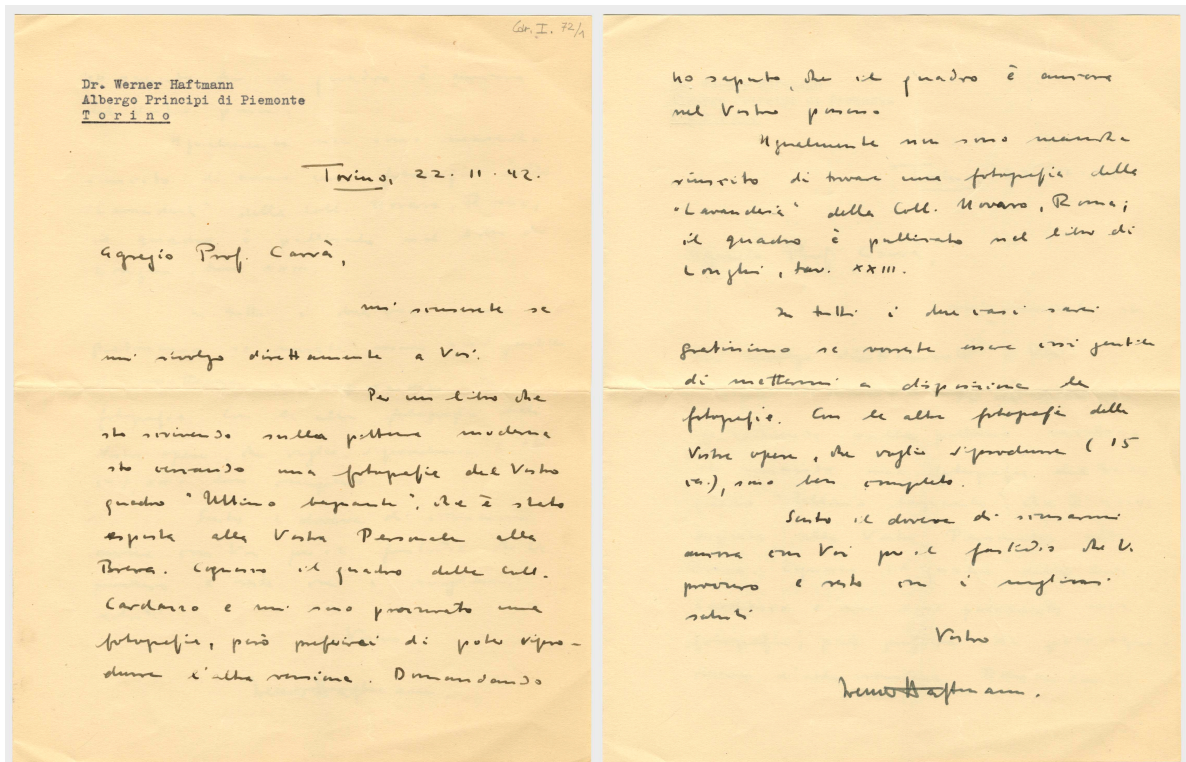 Car. I. 72/1
Dr. Werner Haftmann
Albergo Principi di Piemonte
Torino
Torino, 22. 11. 42.
Agregio Prof. Carrà,
mi scuserete se
mi rivolgo direttamente a Voi.
Per un libro che
sto scrivendo sulla pittura moderna
sto cercando una fotografia del Vostro
quadro "Ultimo bagnante", che è stato
esposta alla Vostra Personale alla
Brera. Conosco il quadro della Coll.
Cardazzo e mi sono procurato una
fotografia, però preferirei di poter ripro-
durre l'altra versione. Domandando
ho saputo, che il quadro è ancora
nel Vostro possesso
Ugualmente non sono neanche
riuscito di trovare una fotografia della
"Lavandera" della Coll. Novaro, Roma;
il quadro è publicato nel libro di
Longhi, tav. XXIII.
In tutti i due casi sarei
gratissimo se vorreste essere così gentile
di mettermi a disposizione le
fotografie. Con le altre fotografie delle
Vostre opere, che voglio riprodurre (15
ca.), sono ben completo.
Sento il dovere di scusarmi
ancora con Voi per il fastidio che Vi
procuro e resto con i migliori
saluti
Vostro
Werner Haftmann.